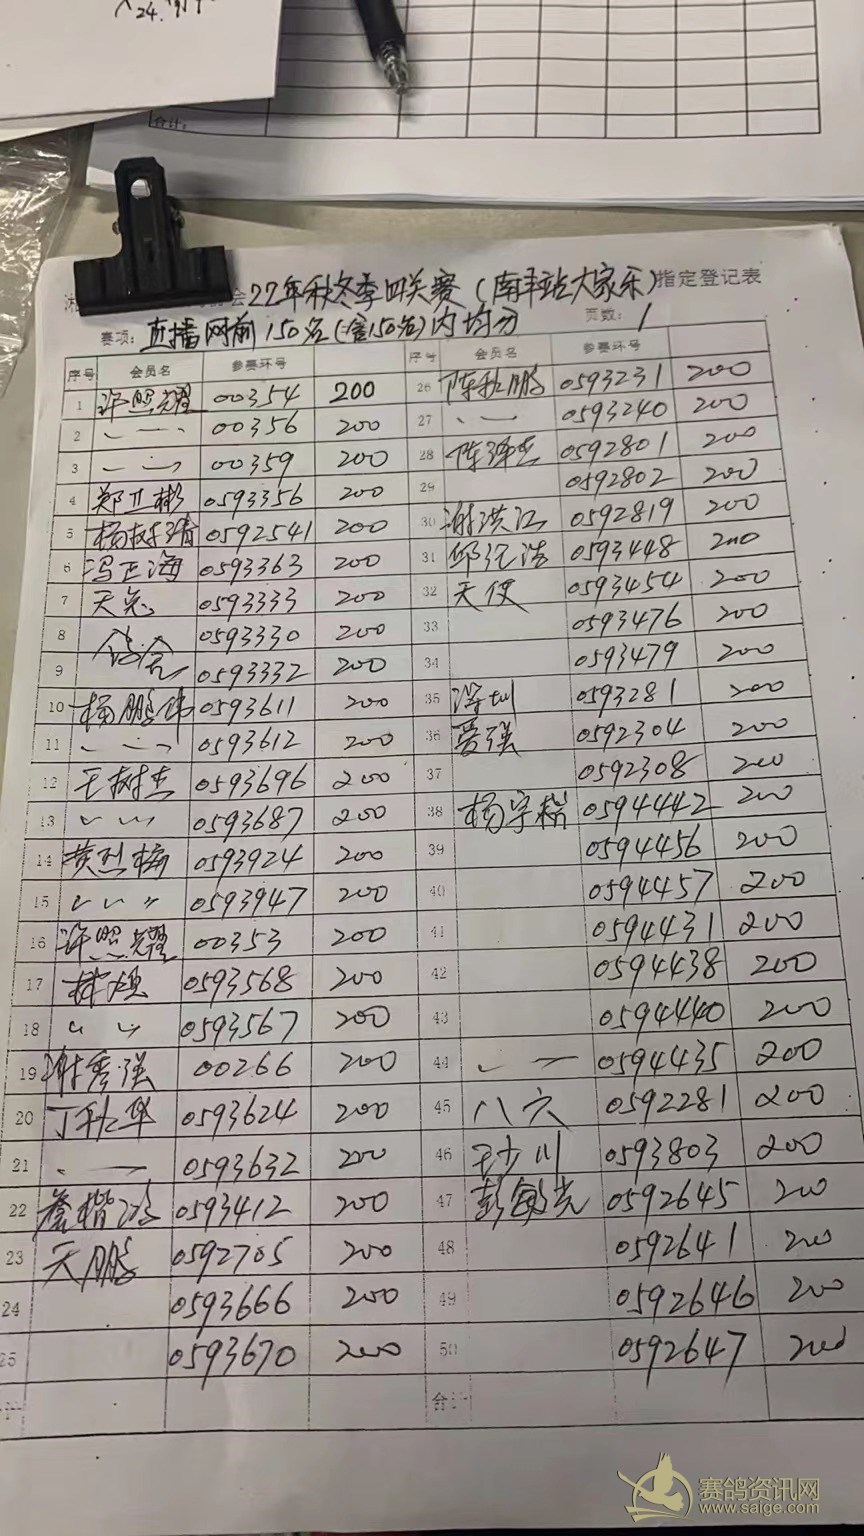 24.
合计:
会22年秋冬季四关赛(南丰站大家乐)指定登记表
赛项: 直播网前150名(含150名)内均分 页数: 1
序号 会员名 参赛环号 序号 会员名 参赛环号
1 许照耀 00354 200 26 陈秋鹏 0593231 200
2 〃 00356 200 27 〃 0593240 200
3 〃 00359 200 28 陈泽杰 0592801 200
4 郑 彬 0593356 200 29 0592802 200
5 杨树靖 0592541 200 30 谢洪江 0592819 200
6 冯正海 0593363 200 31 邱 0593448 200
7 天 0593333 200 32 天使 0593454 200
8 鸽舍 0593330 200 33 0593476 200
9 0593332 200 34 0593479 200
10 杨鹏伟 0593611 200 35 深圳 0593281 200
11 〃 0593612 200 36 爱强 0592304 200
12 王树杰 0593696 200 37 0592308 200
13 〃 0593687 200 38 杨宇楷 0594442 200
14 黄烈梅 0593924 200 39 0594456 200
15 〃 0593947 200 40 0594457 200
16 许照耀 00353 200 41 0594431 200
17 林 0593568 200 42 0594438 200
18 〃 0593567 200 43 0594440 200
19 谢秀强 00266 200 44 〃 0594435 200
20 丁秋华 0593624 200 45 八六 0592281 200
21 〃 0593632 200 46 川 0593803 200
22 詹楷鸿 0593412 200 47 彭敏光 0592645 200
23 天鹏 0592705 200 48 0592641 200
24 0593666 200 49 0592646 200
25 0593670 200 50 0592647 200
合计
赛鸽资讯网
www.saige.com